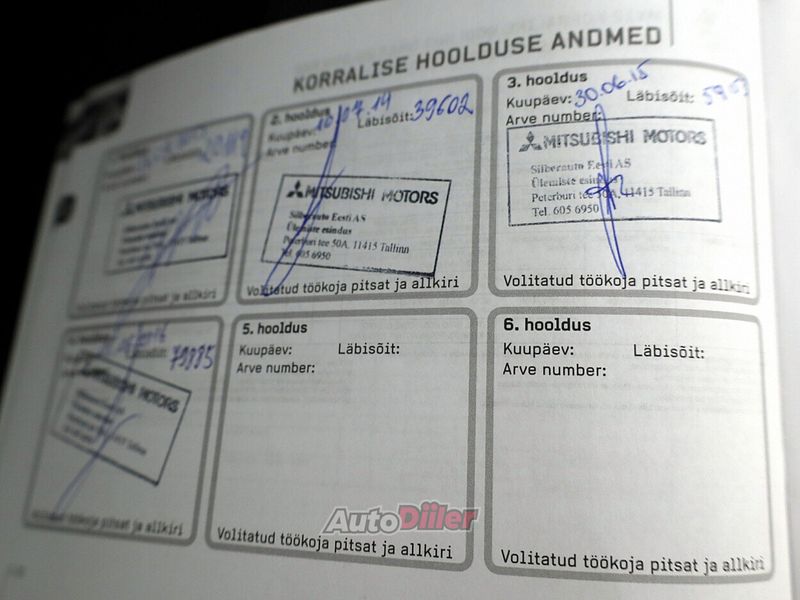 KORRALISE HOOLDUSE ANDMED
MITSUBISHI MOTORS
Volitatud töökoja pitsat ja allkiri
2. hooldus
Kuupäev: 10.07.14 Läbisõit: 39602
Arve number:
MITSUBISHI MOTORS
Silberauto Eesti AS
Ülemiste esindus
Peterburi tee 50A, 11415 Tallinn
Tel. 605 6950
Volitatud töökoja pitsat ja allkiri
3. hooldus
Kuupäev: 30.06.15 Läbisõit:
Arve number:
MITSUBISHI MOTORS
Silberauto Eesti AS
Ülemiste esindus
Peterburi tee 50A, 11415 Tallinn
Tel. 605 6950
Volitatud töökoja pitsat ja allkiri
79885
MOTORS
Volitatud töökoja pitsat ja allkiri
5. hooldus
Kuupäev: Läbisõit:
Arve number:
Volitatud töökoja pitsat ja allkiri
6. hooldus
Kuupäev: Läbisõit:
Arve number:
Volitatud töökoja pitsat ja allkiri
AutoDiiler